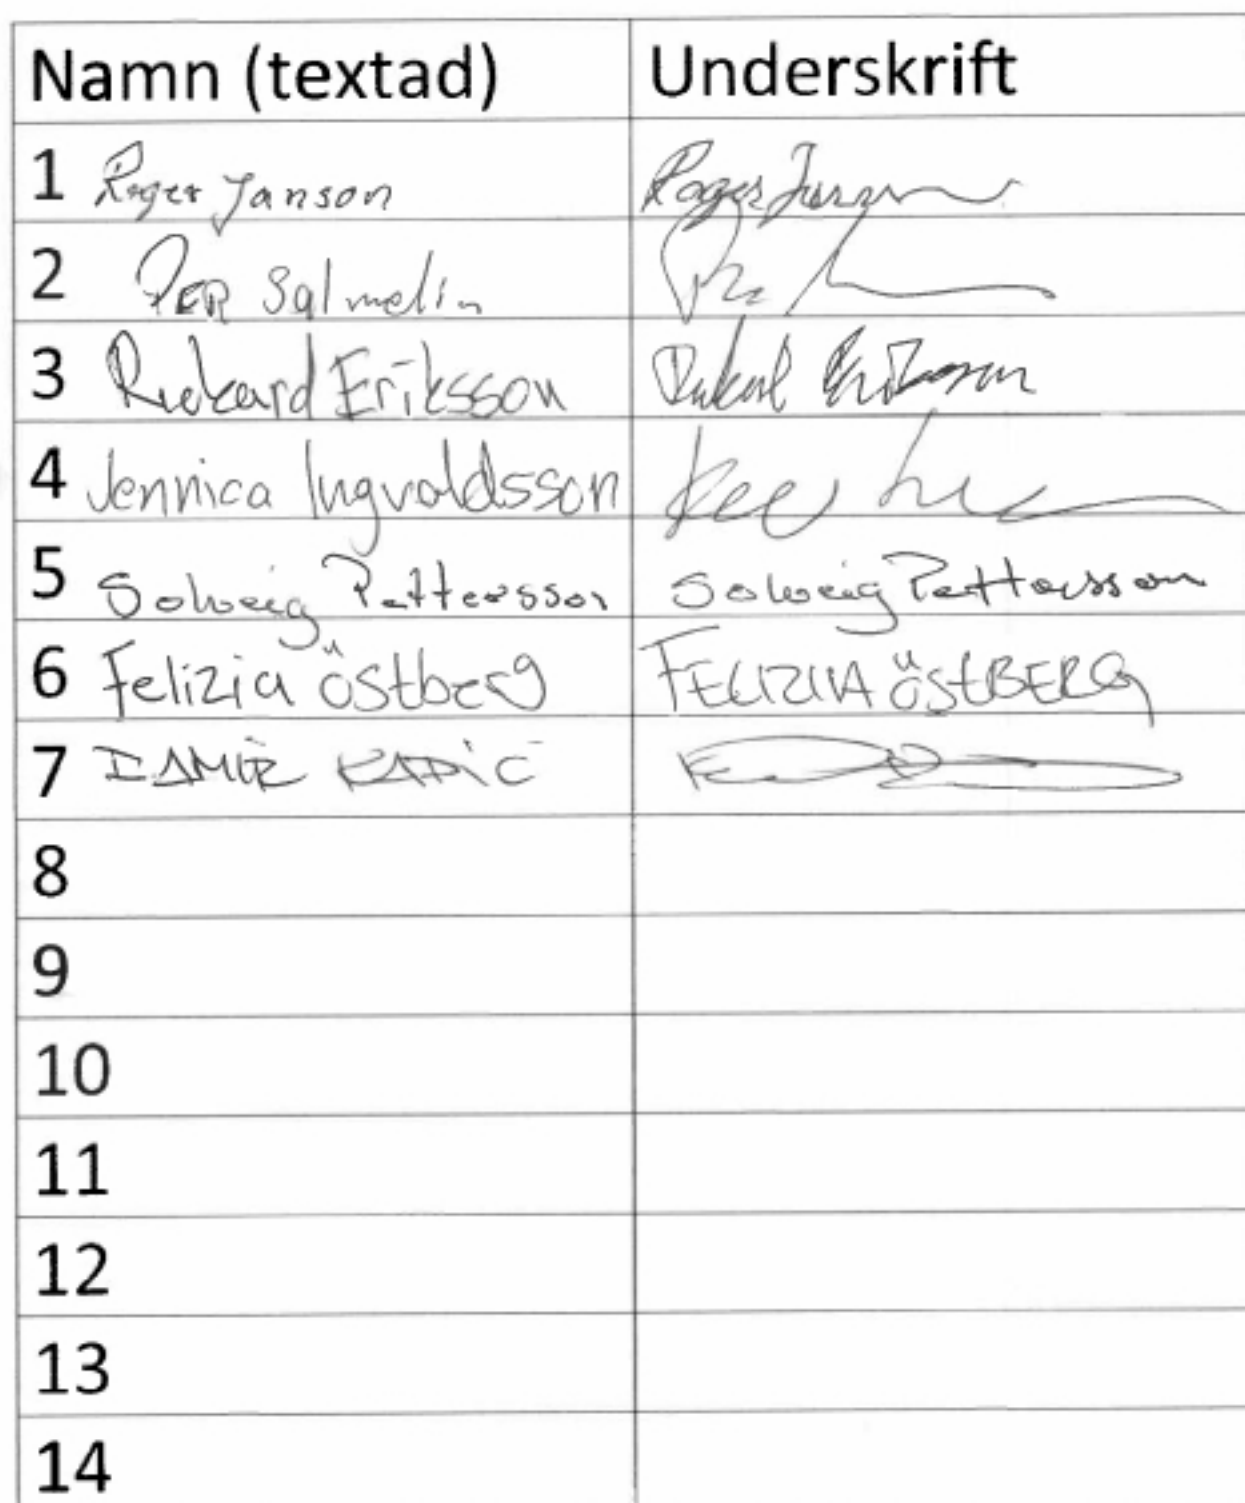 Namn (textad) Underskrift
1 Roger Janson Roger Janson
2 PER Salmelin
3 Rickard Eriksson Rickard Eriksson
4 Jennica Ingvaldsson
5 Solveig Pettersson Solveig Pettersson
6 Felizia Östberg FELIZIA ÖSTBERG
7 DAMIR KADIĆ
8
9
10
11
12
13
14